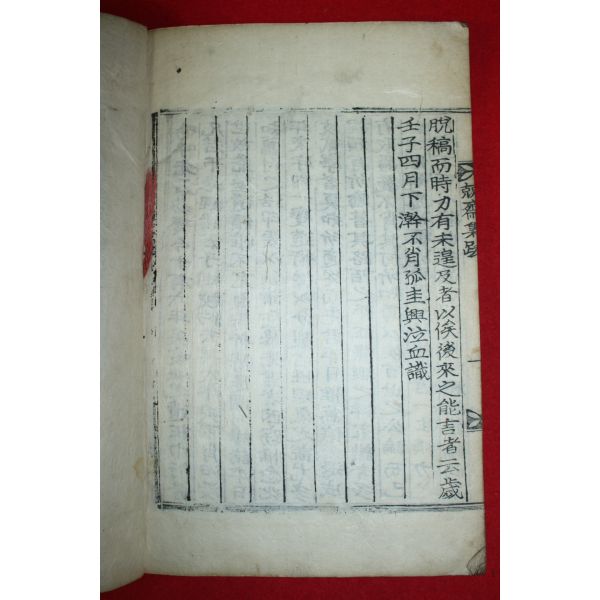 齋集跋
脫稿而時力有未遑及者以俟後來之能言者云歲
壬子四月下澣不肖孤圭興泣血識